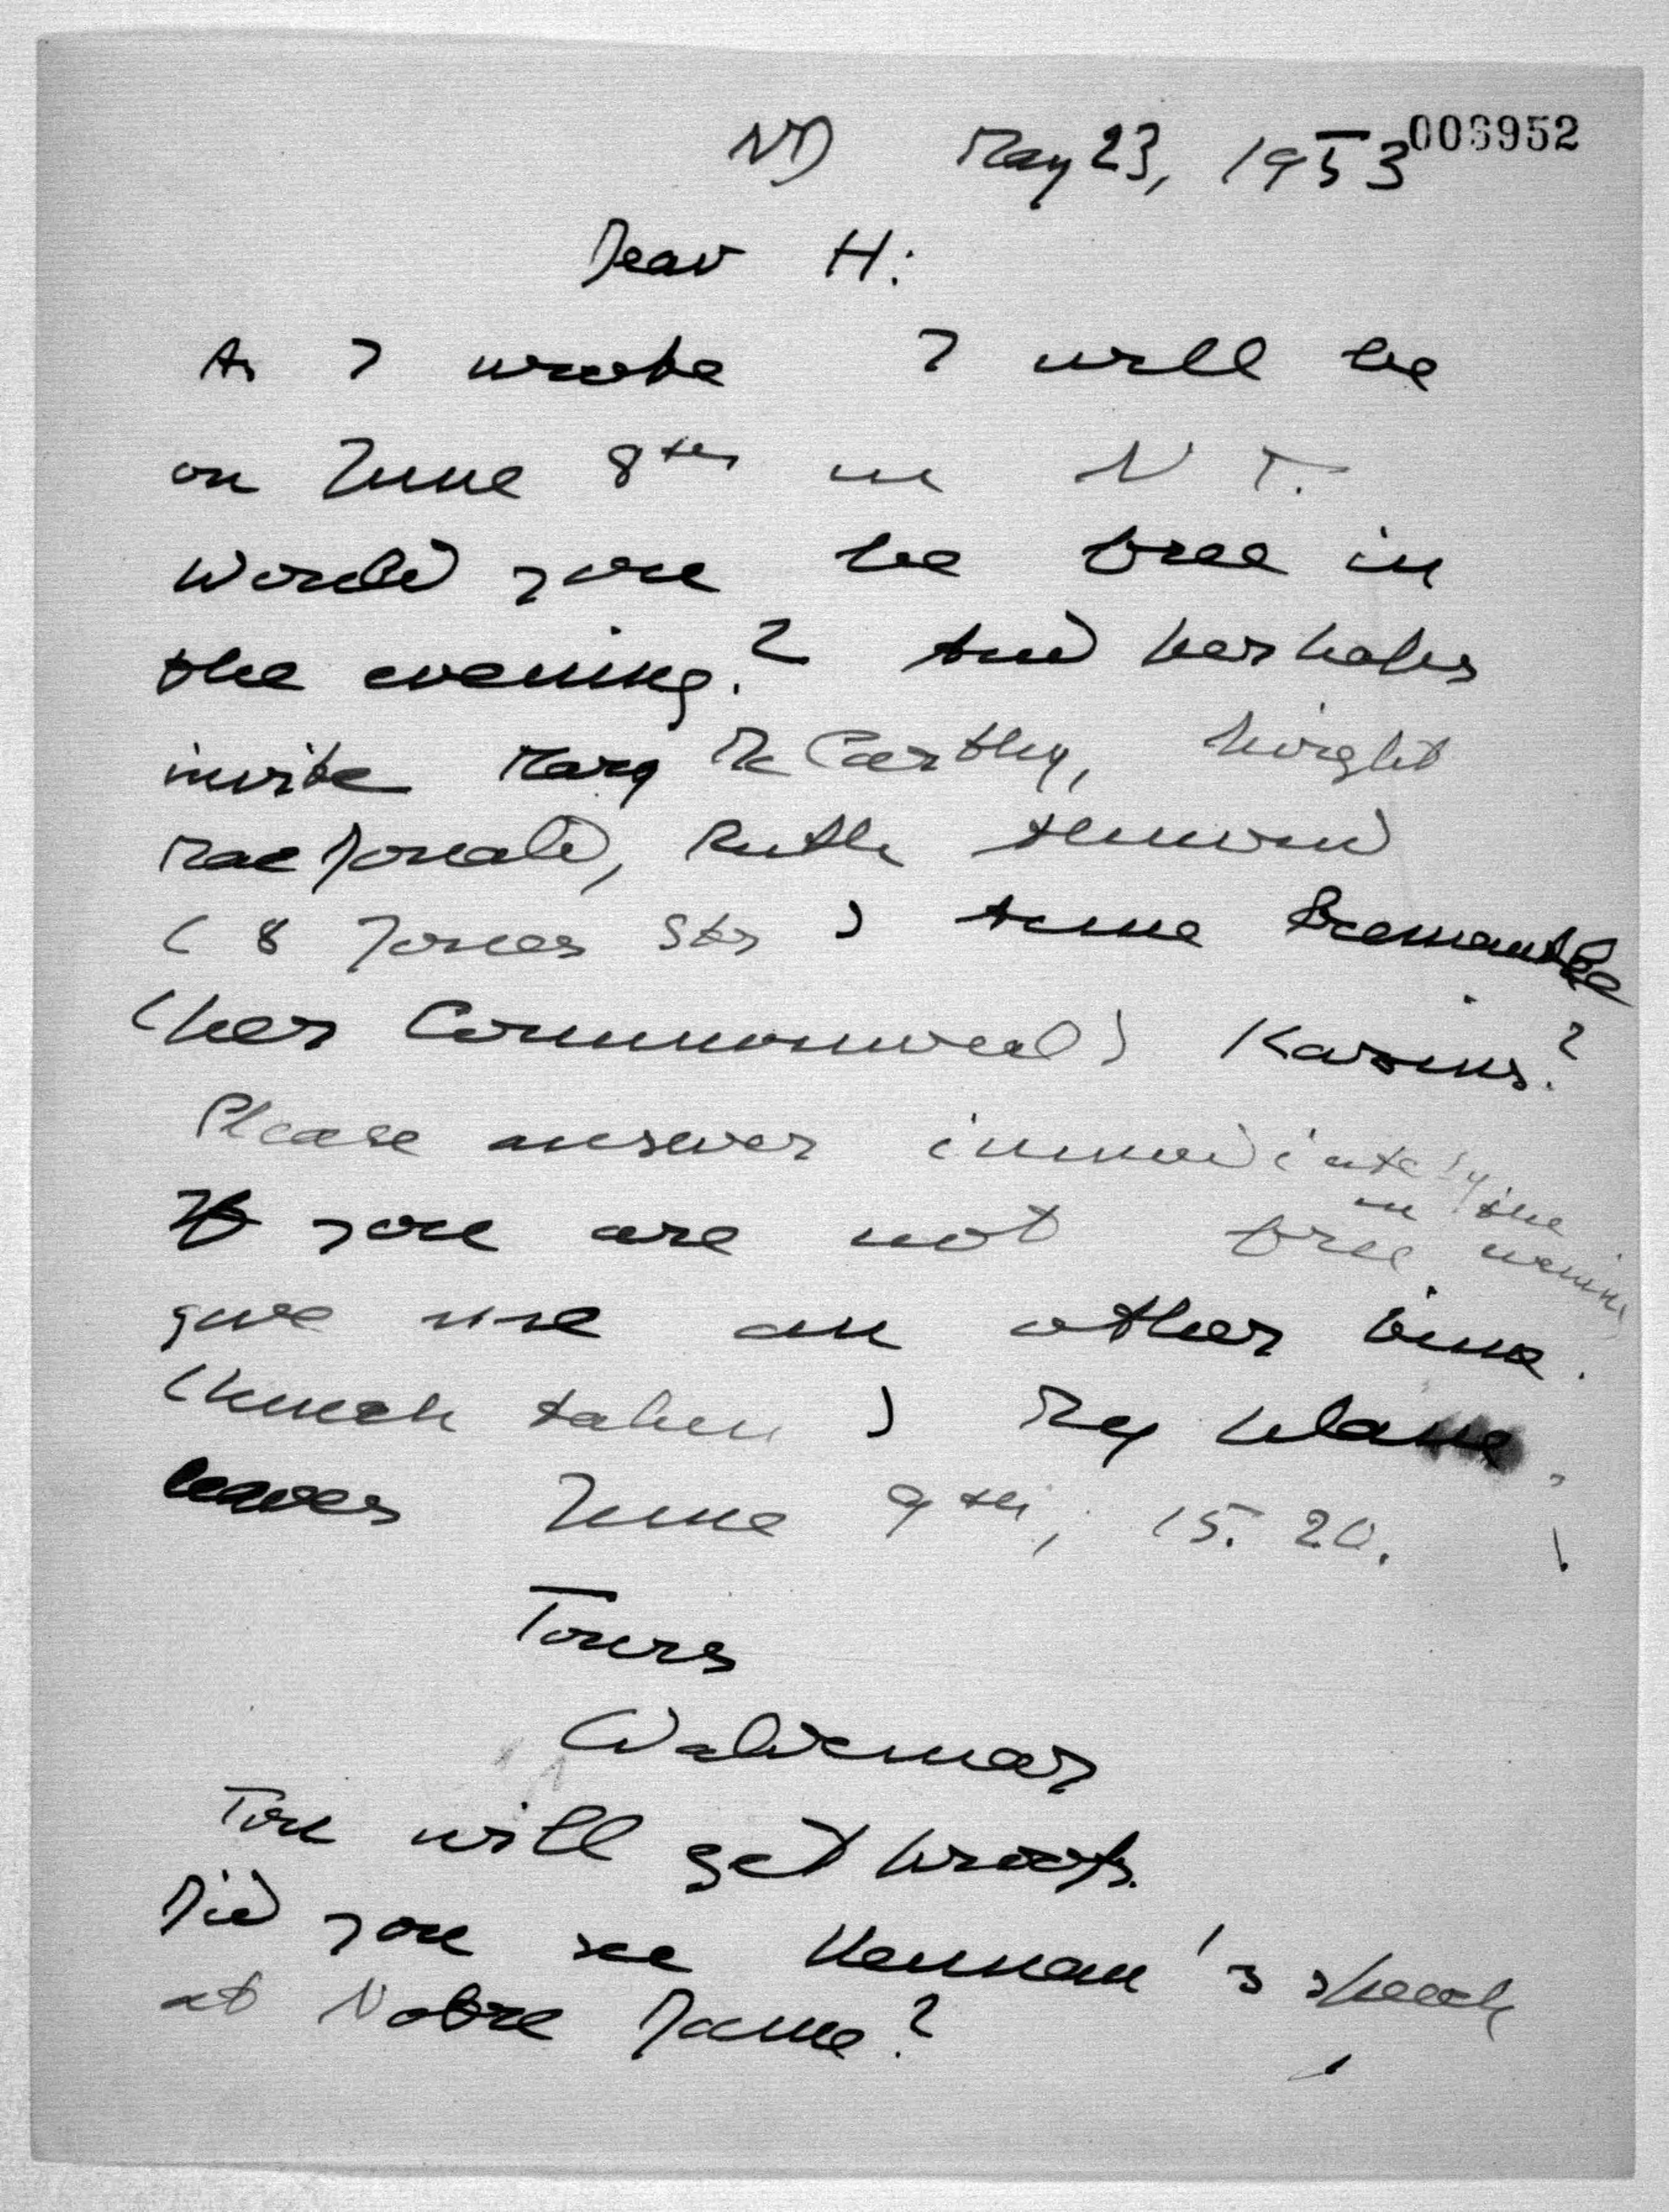 ND May 23, 1953 006952
Dear H:
As I wrote I will be
on June 8th in N Y.
Would you be free in
the evening? And perhaps
invite Mary McCarthy, Dwight
MacDonald, Ruth
(8 Jones Str) Anne Fremantle
(per Commonweal) Kazins?
Please answer immediately
If you are not free in the evening
give me an other time.
(lunch taken) My plane
leaves June 9th, 15.20.!
Yours
Waldemar
You will get proofs.
Did you see Kennan's speech
at Notre Dame?